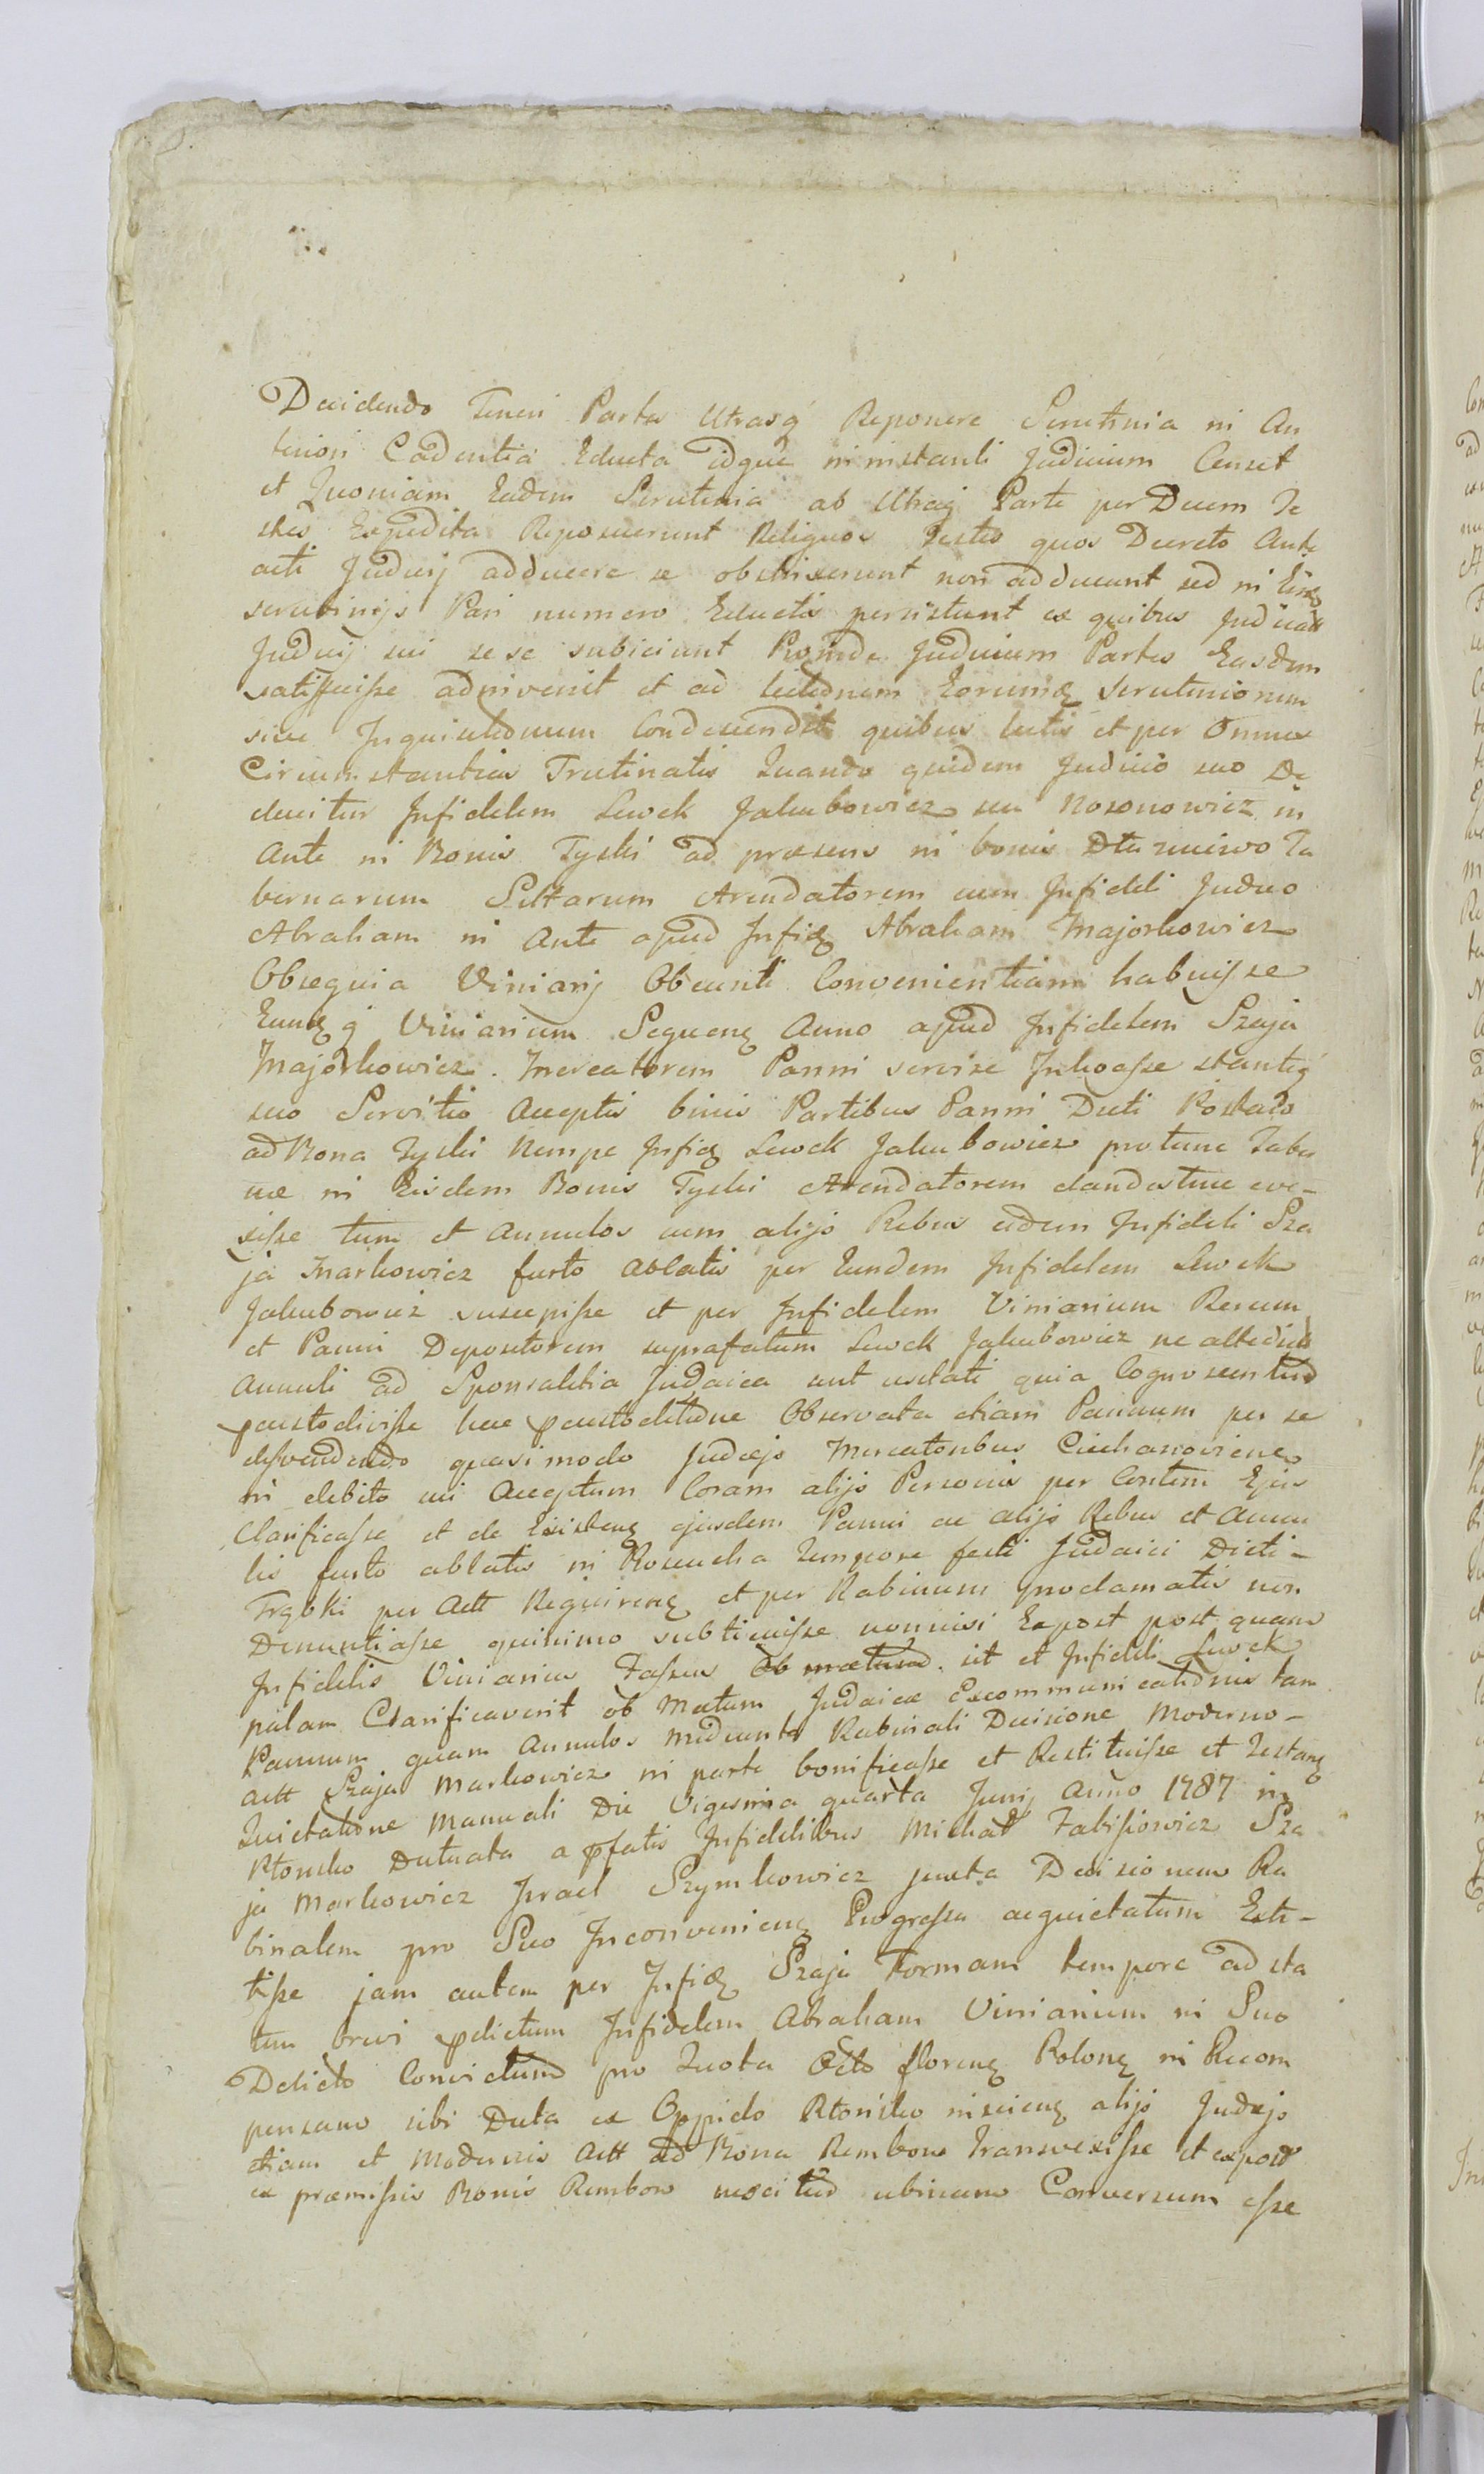 Decidendo Teneri Partes Utrasq Reponere Scrutinia in An
teriori Cadentia Educta idque in instanti Judicium Censet
et Quoniam Eadem Scrutinia ab Utraq Parte per Decem Te
stes Expedita Reposuerunt Reliquos Testes quos Decreto Ante
acti Judicij adducere se obstrinxerunt non adducunt sed in Eisd
scrutinijs Pari numero Eductis persistunt ex quibus Judicatt
Judicij sui sese subiciunt Proinde Judicium Partes Easdem
satisfecisse adinvenit et ad lectionem Eorumq Scrutiniorum
sive Inquisitionum Condescendit quibus lectis et per Omnes
Circumstantias Trutinatis Quando quidem Judicio suo De
ducitur Infidelem Lewek Jakubowicz seu Nosonowicz in
Ante in Bonis Tyski ad praesens in bonis Dtuzniewo Ta
bernarum Arendatorem cum Infideli Judeo
Abraham in Ante apud Infiq Abraham Majorkowicz
Obsequia Viniarij Obeunti Convenientiam habuisse
Eumq q Viniarium Sequenq Anno apud Infidelem Szaja
Majorkowicz Mercatorem Panni servire Inhoasse stanteq
suo Servitio Acceptis binis Partibus Panni Dicti Postaw
ad Bona Tyski Nempe Infiq Lewek Jakubowicz protunc Taber
nae in Eisdem Bonis Tyski Arendatorem clandestine eve-
xisse tum et Annulos cum alijs Rebus eidem Infideli Sza
ja Markowicz furto Ablatis per Eundem Infidelem Lewek
Jakubowicz suscepisse et per Infidelem Viniarium Rerum
et Panni Depositorem suprafatum Lewek Jakubowicz ne
Annuli ad Sponsalitia Judaica sint usitati quia Cognoscentur
pcustodivisse hac pcustoditione Observata etiam Pannum per se
disvendendo quasi modo Judaejs Mercatoribus Ciechanoviens
in debito sui Acceptum Coram alijs Personis per Contem Ejus
Clarificasse et de Existenq ejusdem Panni ac alijs Rebus et Annu
lis furto ablatis in Tempore festi Judaici Dicti-
Trąbki per Att Requirenq et per Rabinum proclamatis non
Denuntiasse quinimo subticuisse nonnisi Expost post quam
Infidelis Viniarius Fassus Ob sit et Infideli Lewek
palam Clarificaverit ob Metum Judaicae Excommunicationis tam
Pannum quam Annulos mediante Rabinali Decisione Moderno-
Att Szaja Markowicz in parte bonificasse et Restituisse et Testanq
Quietatione Manuali Die Vigesima quarta Junij Anno 1787 in
Płonsko Dutuata a pfatis Infidelibus Michał Fabisiowicz Sza
ja Markowicz Israel Szymkowicz juxta Decisionem Ra
binalem pro Suo Inconvenienq Progressu acquietatum Exti-
tisse jam autem per Infiq Szaja Formam tempore ad sta
tum brevi pdictum Infidelem Abraham Viniarium in Suo
Delicto Convictum pro Quota Octo florenq Polonq in Recom
pensam sibi Data ex Oppido Płonsko inscienq alijs Judaejs
etiam et Modernis Att ad Bona Rembow Transvexisse et expost
ex praemissis Bonis Rembow nescitur ubinam Conversum esse